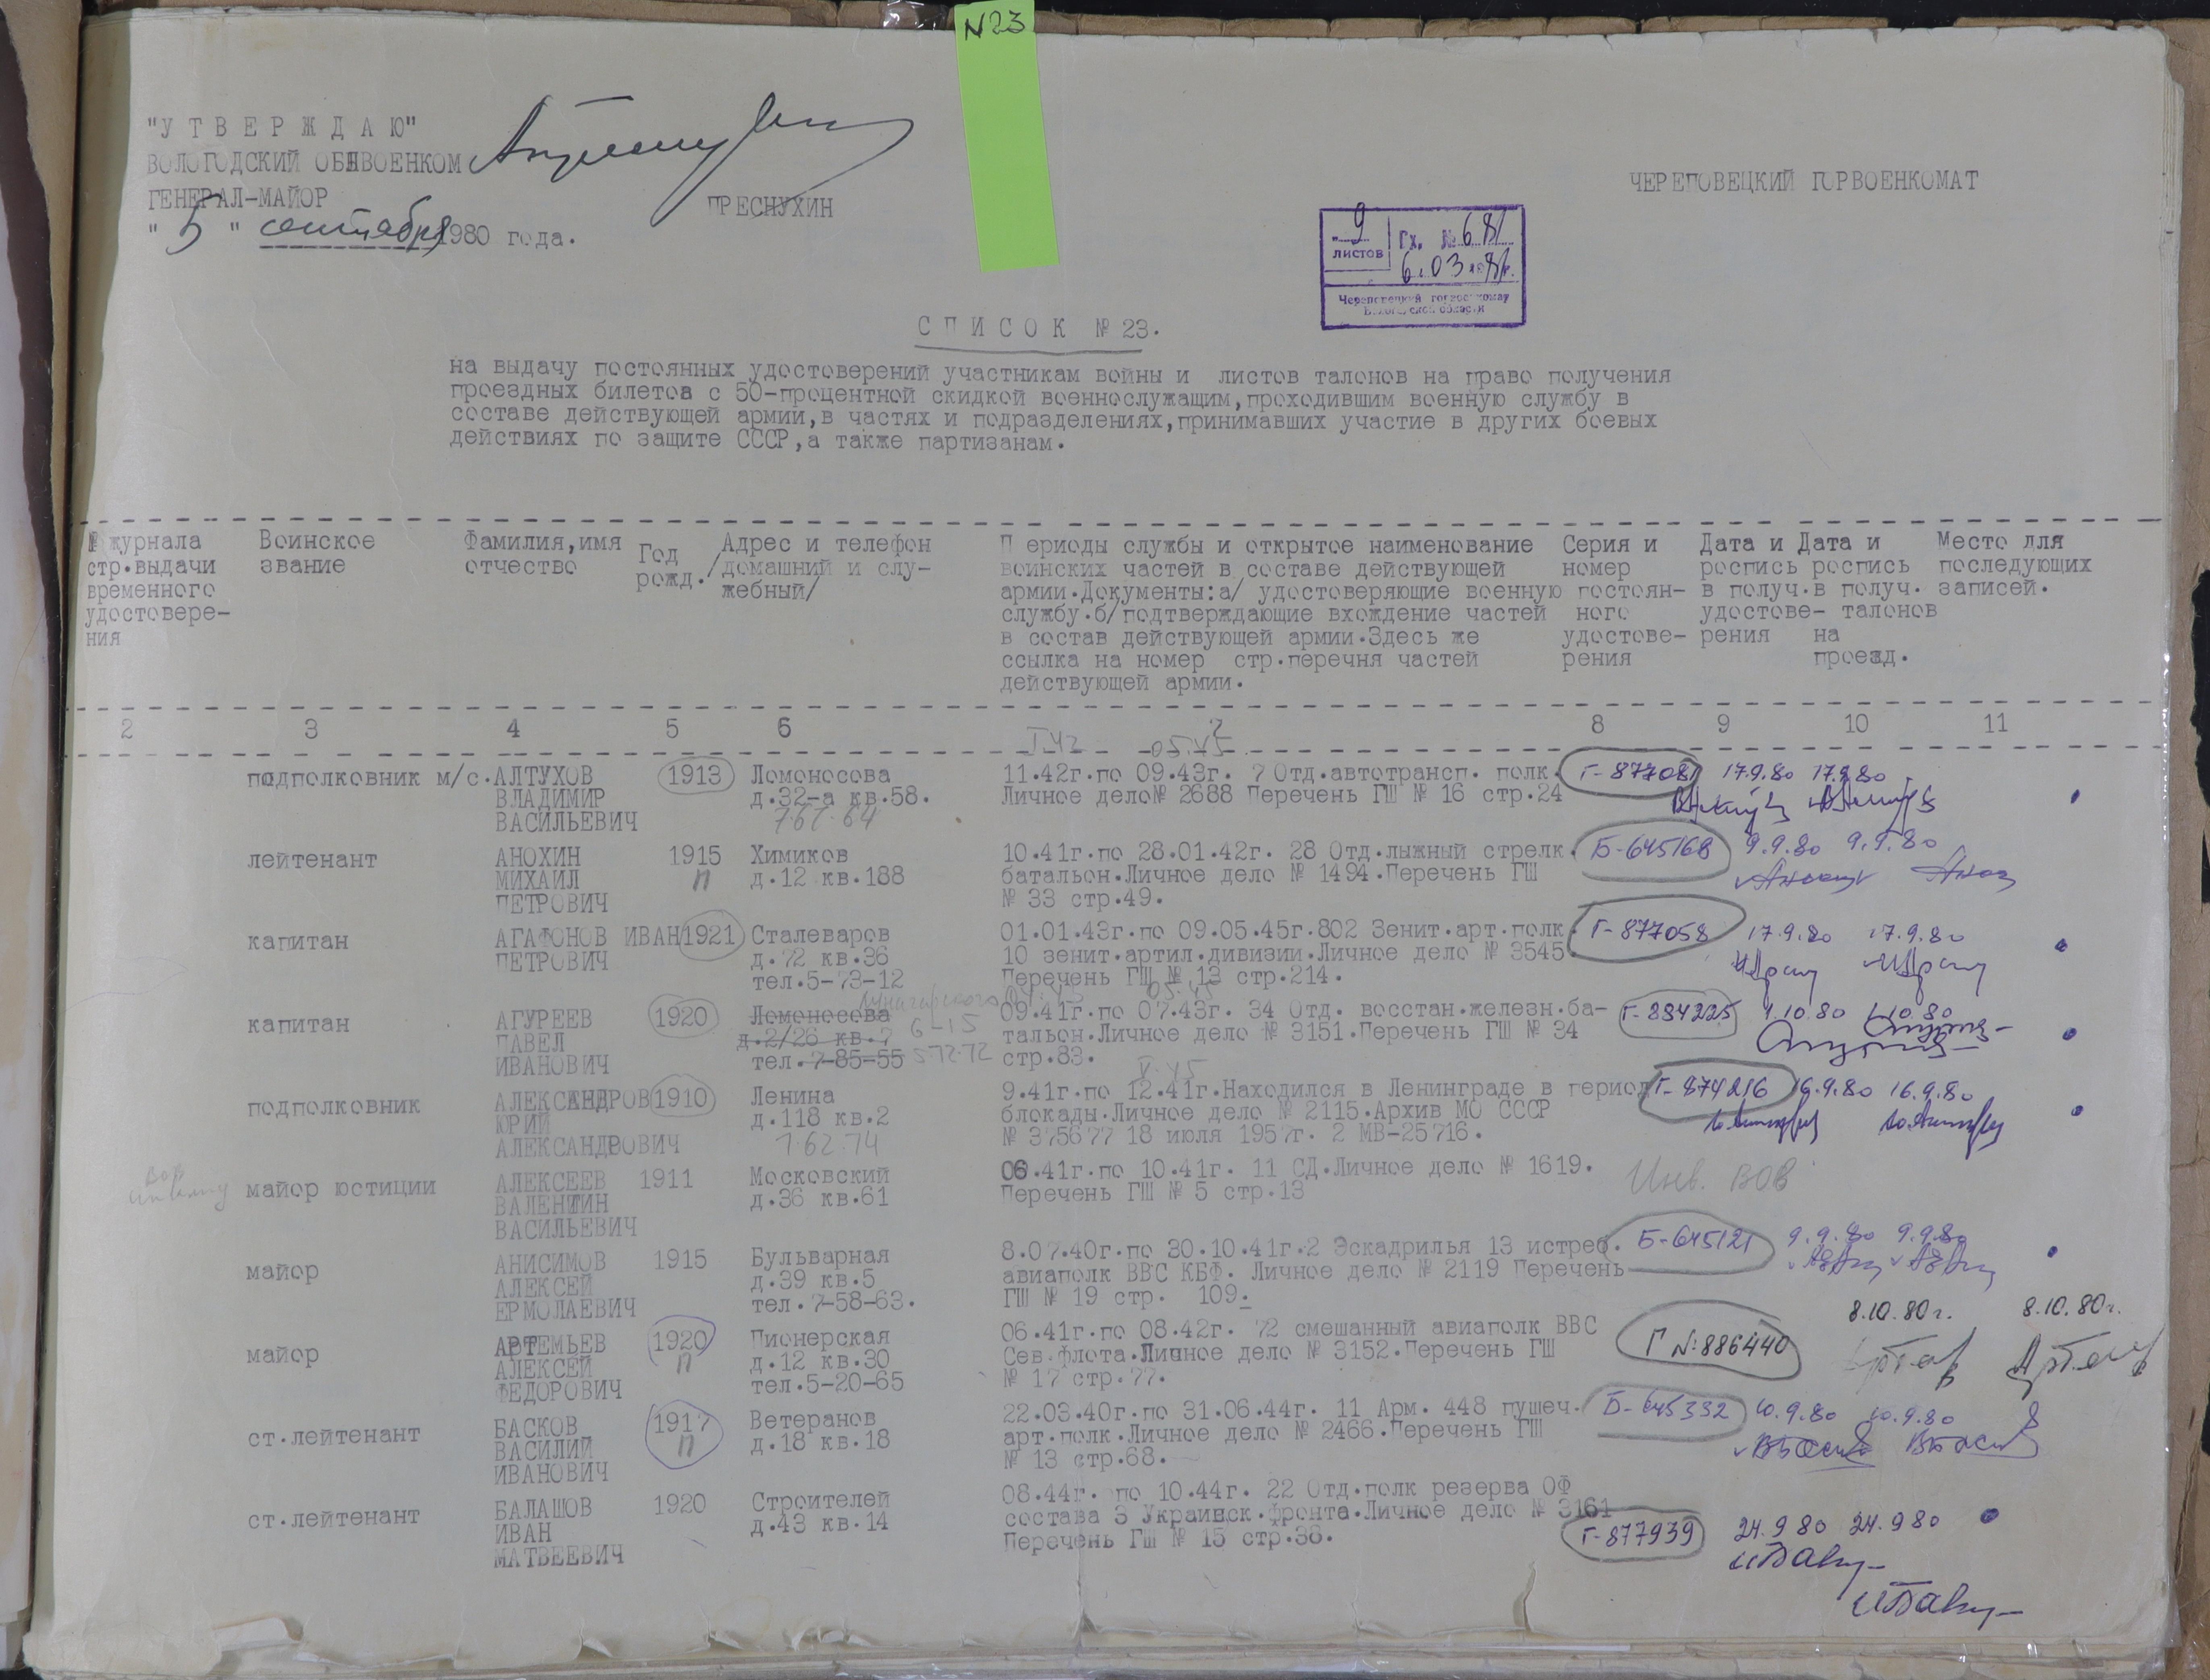 N23
"У Т В Е Р Ж Д А Ю"
ВОЛОГОДСКИЙ ОБЛВОЕНКОМ
ГЕНЕРАЛ-МАЙОР ПРЕСНУХИН
" 5 " сентября 1980 года.
ЧЕРЕПОВЕЦКИЙ ГОРВОЕНКОМАТ
9 листов Вх. № 681
6.03.1981г.
Череповецкий горвоенкомат
Вологодской области
С П И С О К № 23.
на выдачу постоянных удостоверений участникам войны и листов талонов на право получения
проездных билетов с 50-процентной скидкой военнослужащим,проходившим военную службу в
составе действующей армии,в частях и подразделениях,принимавших участие в других боевых
действиях по защите СССР,а также партизанам.
№ журнала стр.выдачи временного удостовере- ния
Воинское звание
Фамилия,имя отчество
Год рожд.
Адрес и телефон /домашний и слу- жебный/
Периоды службы и открытое наименование
воинских частей в составе действующей
армии.Документы:а/ удостоверяющие военную
службу.б/подтверждающие вхождение частей
в состав действующей армии.Здесь же
ссылка на номер стр.перечня частей
действующей армии.
Серия и номер постоян- ного удостове- рения
Дата и роспись в получ. удостове- рения
Дата и роспись в получ. талонов на проезд.
Место для последующих записей.
2 3 4 5 6 7 8 9 10 11
I.42 05.45
подполковник м/с. АЛТУХОВ 1913 Ломоносова 11.42г.по 09.43г. 7 Отд.автотрансп. полк. Г-877081 17.9.80 17.9.80
ВЛАДИМИР д.32-а кв.58. Личное дело№ 2688 Перечень ГШ № 16 стр.24
ВАСИЛЬЕВИЧ 7.67.64
лейтенант АНОХИН 1915 Химиков 10.41г.по 28.01.42г. 28 Отд.лыжный стрелк. Б-645168 9.9.80 9.9.80
МИХАИЛ п д.12 кв.188 батальон.Личное дело № 1494.Перечень ГШ
ПЕТРОВИЧ № 33 стр.49.
капитан АГАФОНОВ ИВАН 1921 Сталеваров 01.01.43г.по 09.05.45г.802 Зенит.арт.полк. Г-877058 17.9.80 17.9.80
ПЕТРОВИЧ д.72 кв.36 10 зенит.артил.дивизии.Личное дело № 3545.
тел.5-73-12 Перечень ГШ № 13 стр.214.
05.45
капитан АГУРЕЕВ 1920 Ломоносова 09.41г.по 07.43г. 34 Отд. восстан.железн.ба- Г-884225 1.10.80 1.10.80
ПАВЕЛ д.2/26 кв.7 6-15 тальон.Личное дело № 3151.Перечень ГШ № 34
ИВАНОВИЧ тел.7-85-55 5.72.72 стр.83.
V.45
подполковник АЛЕКСАНДРОВ 1910 Ленина 9.41г.по 12.41г.Находился в Ленинграде в период Г-874216 16.9.80 16.9.80
ЮРИЙ д.118 кв.2 блокады.Личное дело № 2115.Архив МО СССР
АЛЕКСАНДРОВИЧ 7.62.74 № 375677 18 июля 1957г. 2 МВ-25716.
майор юстиции АЛЕКСЕЕВ 1911 Московский 06.41г.по 10.41г. 11 СД.Личное дело № 1619. Инв. ВОВ
ВАЛЕНТИН д.36 кв.61 Перечень ГШ № 5 стр.13
ВАСИЛЬЕВИЧ
майор АНИСИМОВ 1915 Бульварная 8.07.40г.по 30.10.41г.2 Эскадрилья 13 истреб. Б-645121 9.9.80 9.9.80
АЛЕКСЕЙ д.39 кв.5 авиаполк ВВС КБФ. Личное дело № 2119 Перечень
ЕРМОЛАЕВИЧ тел.7-58-63. ГШ № 19 стр. 109.
майор АРТЕМЬЕВ 1920 Пионерская 06.41г.по 08.42г. 72 смешанный авиаполк ВВС Г №:886440 8.10.80г. 8.10.80г.
АЛЕКСЕЙ п д.12 кв.30 Сев.флота.Личное дело № 3152.Перечень ГШ
ФЕДОРОВИЧ тел.5-20-65 № 17 стр.77.
ст.лейтенант БАСКОВ 1917 Ветеранов 22.03.40г.по 31.06.44г. 11 Арм. 448 пушеч. Б-645332 10.9.80 10.9.80
ВАСИЛИЙ п д.18 кв.18 арт.полк.Личное дело № 2466.Перечень ГШ
ИВАНОВИЧ № 13 стр.68.
ст.лейтенант БАЛАШОВ 1920 Строителей 08.44г. по 10.44г. 22 Отд.полк резерва ОФ
ИВАН д.43 кв.14 состава 3 Украинск.фронта.Личное дело № 3161
МАТВЕЕВИЧ Перечень ГШ № 15 стр.38. Г-877939 24.9 80 24.9 80